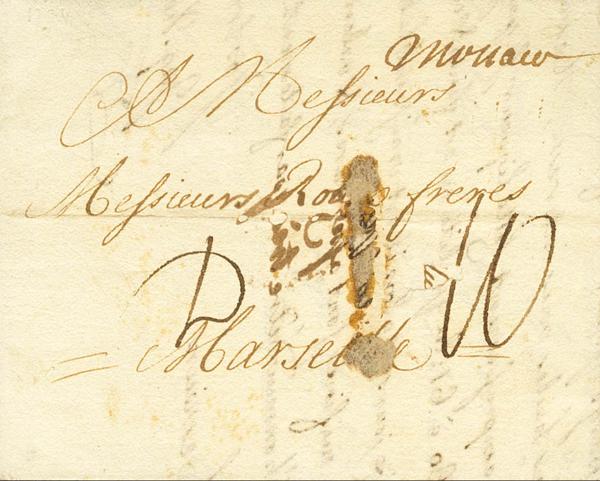 Monaco
A Messieurs
Messieurs freres
D
10
= Marseille =